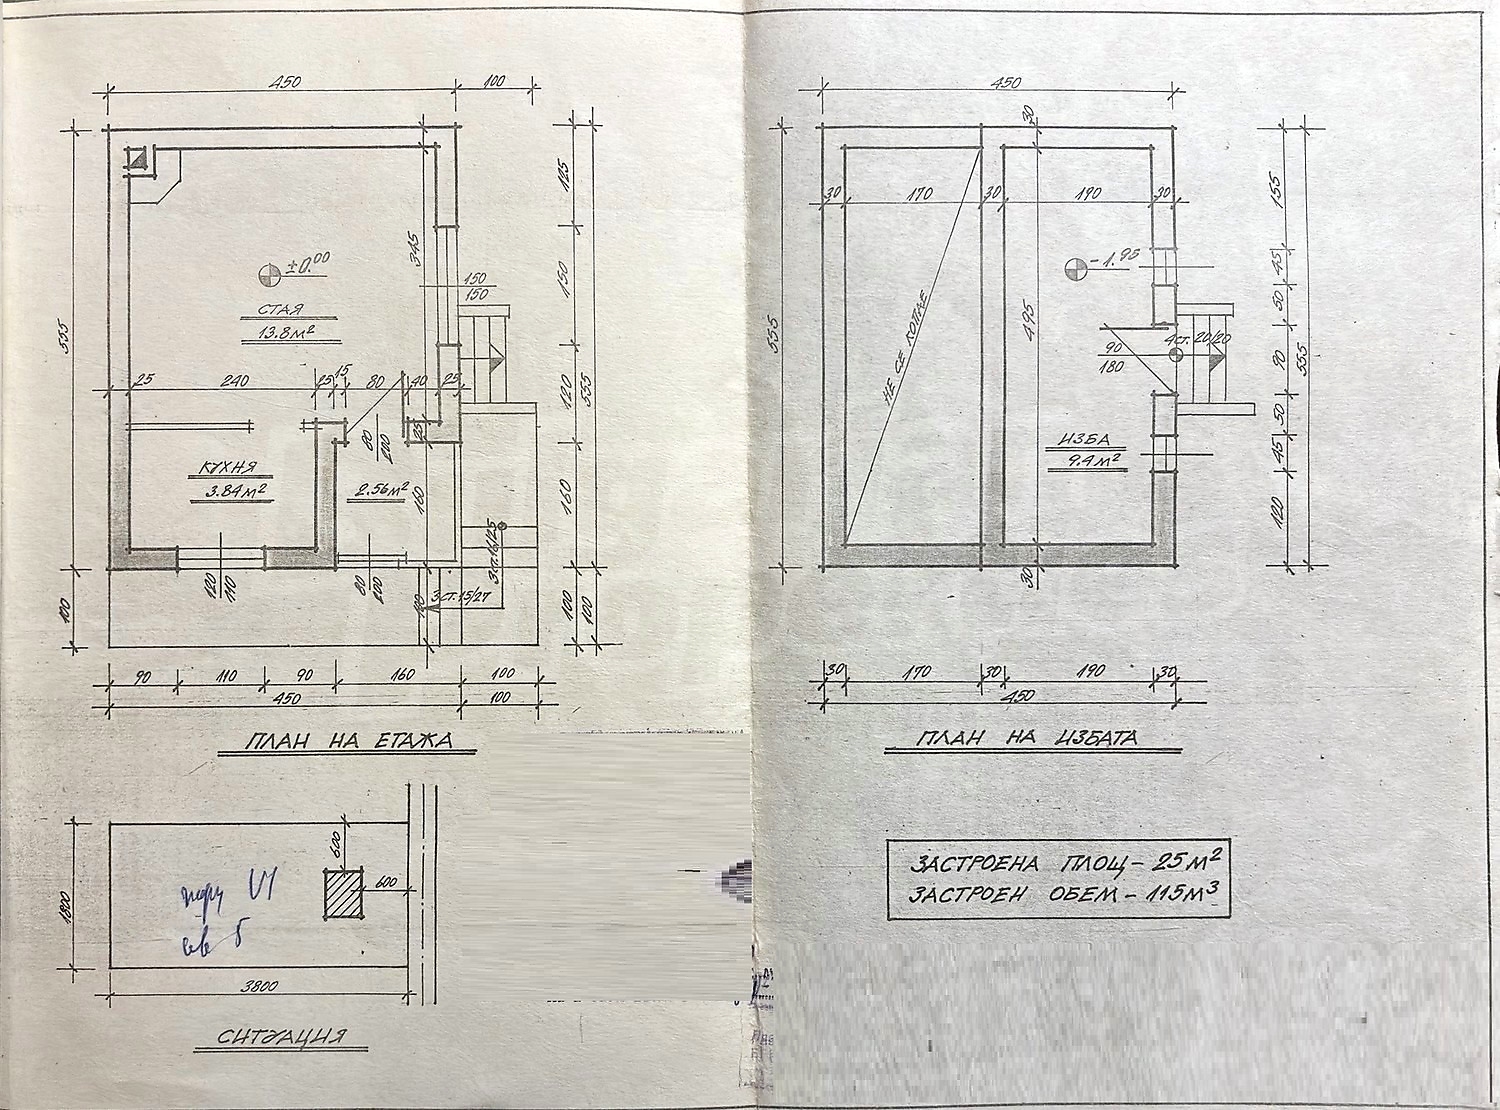 450
100
555
125
150
120
160
100
555
100
345
±0.00
СТАЯ
13.8 м²
150
150
25
240
25
15
80
40
25
25
80
200
КУХНЯ
3.84 м²
2.56 м²
160
120
110
80
200
3 ст. 16/25
3 ст. 15/27
100
100
90
110
90
160
100
450
100
ПЛАН НА ЕТАЖА
1800
600
600
3800
СИТУАЦИЯ
450
30
555
30
170
30
190
30
-1.95
495
НЕ СЕ КОПАЕ
90
180
4 ст. 20/20
ИЗБА
9.4 м²
155
45
50
90
50
45
120
555
30
30
170
30
190
30
450
ПЛАН НА ИЗБАТА
ЗАСТРОЕНА ПЛОЩ - 25 м²
ЗАСТРОЕН ОБЕМ - 115 м³